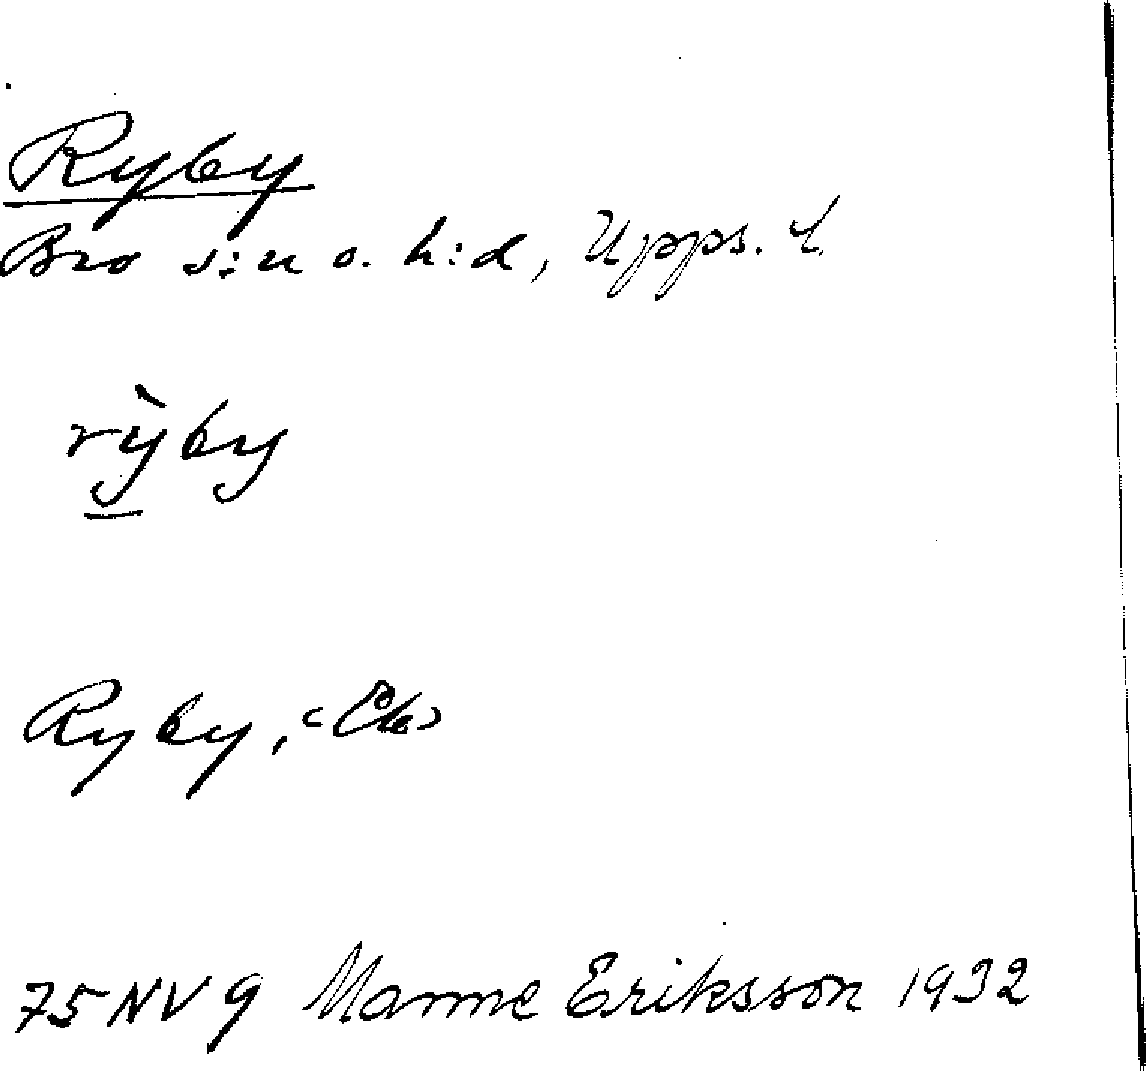 Ryby
Bro s:n o. h:d, Upps. l.
rỳby
Ryby, <Ek>
75 NV 9 Manne Eriksson 1932